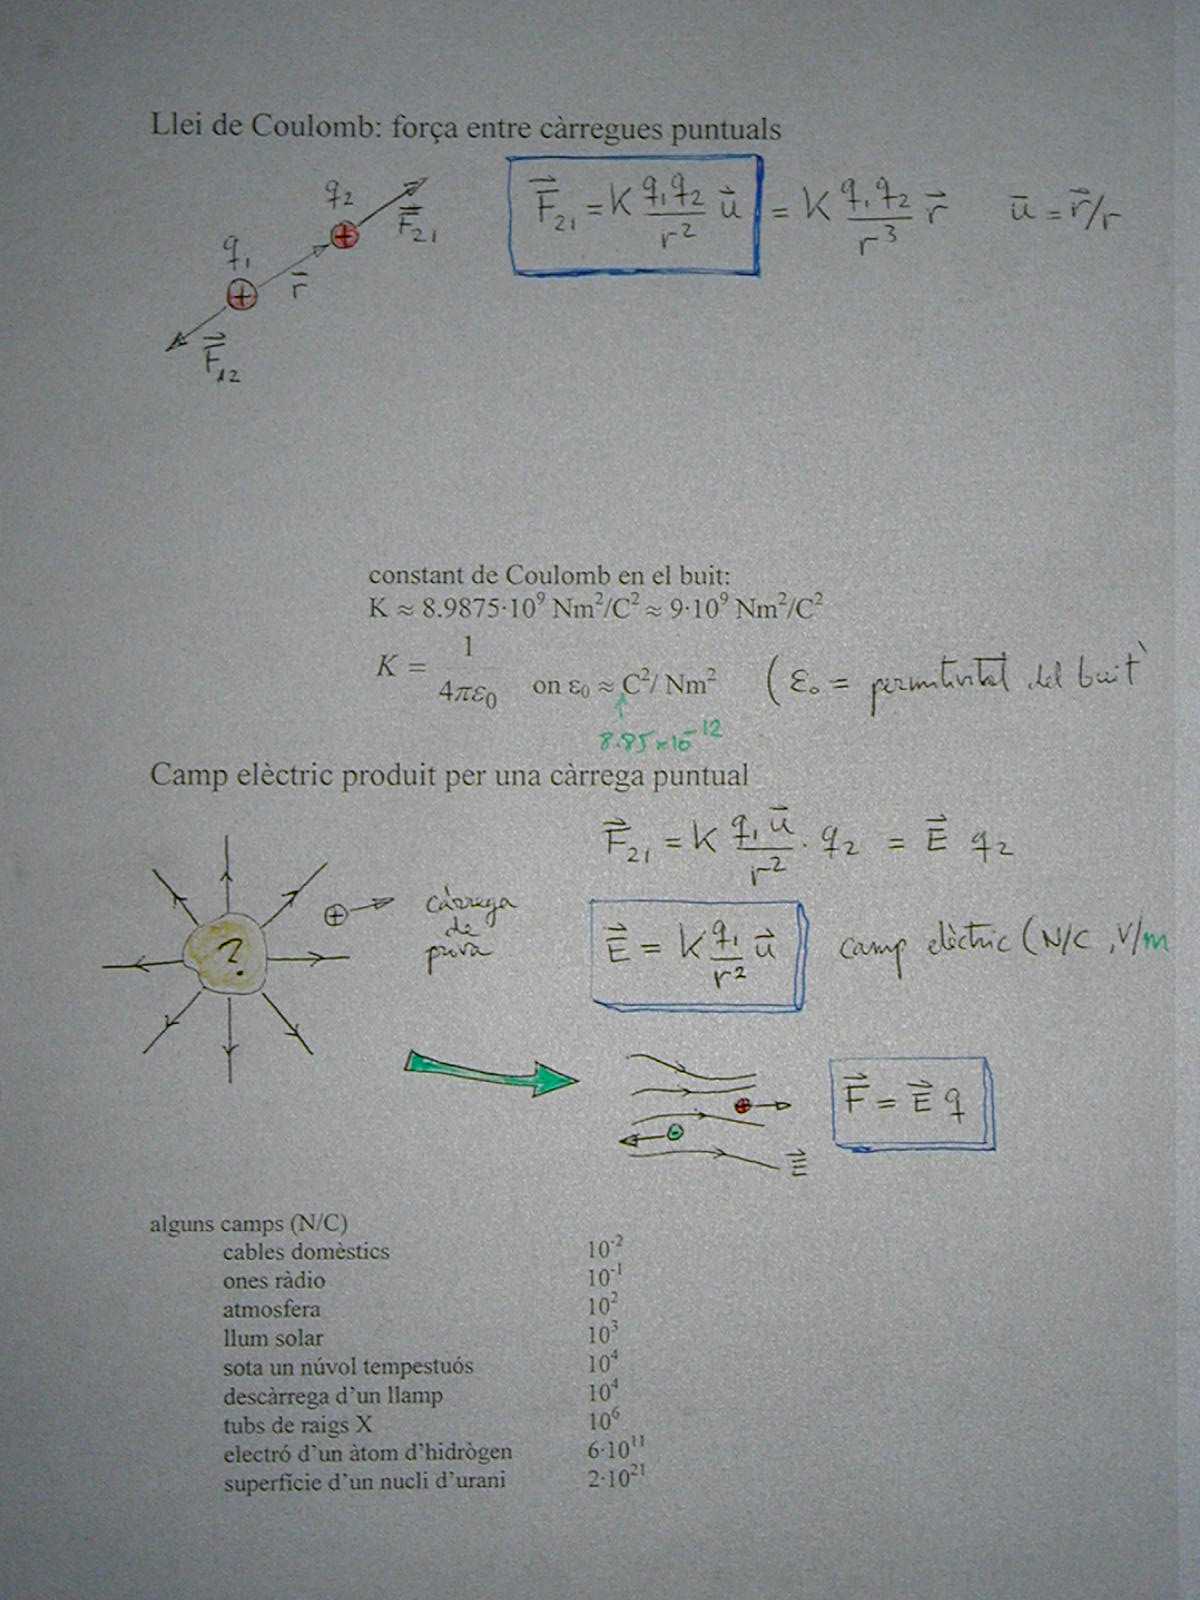 Llei de Coulomb: força entre càrregues puntuals
q₂
F⃗₂₁
q₁
r⃗
F⃗₁₂
F⃗₂₁ = K q₁q₂/r² u⃗ = K q₁q₂/r³ r⃗   ū = r⃗/r
constant de Coulomb en el buit:
K ≈ 8.9875·10⁹ Nm²/C² ≈ 9·10⁹ Nm²/C²
K = 1/4πε₀   on ε₀ ≈ C²/ Nm²   (ε₀ = permitivitat del buit
8.85×10⁻¹²
Camp elèctric produit per una càrrega puntual
F⃗₂₁ = K q₁ū/r² · q₂ = E⃗ q₂
?
+
càrrega
de
prova
E⃗ = K q₁/r² u⃗   camp elèctric (N/C , V/m
+
-
E⃗
F⃗ = E⃗ q
alguns camps (N/C)
cables domèstics 10⁻²
ones ràdio 10⁻¹
atmosfera 10²
llum solar 10³
sota un núvol tempestuós 10⁴
descàrrega d'un llamp 10⁴
tubs de raigs X 10⁶
electró d'un àtom d'hidrògen 6·10¹¹
superfície d'un nucli d'urani 2·10²¹